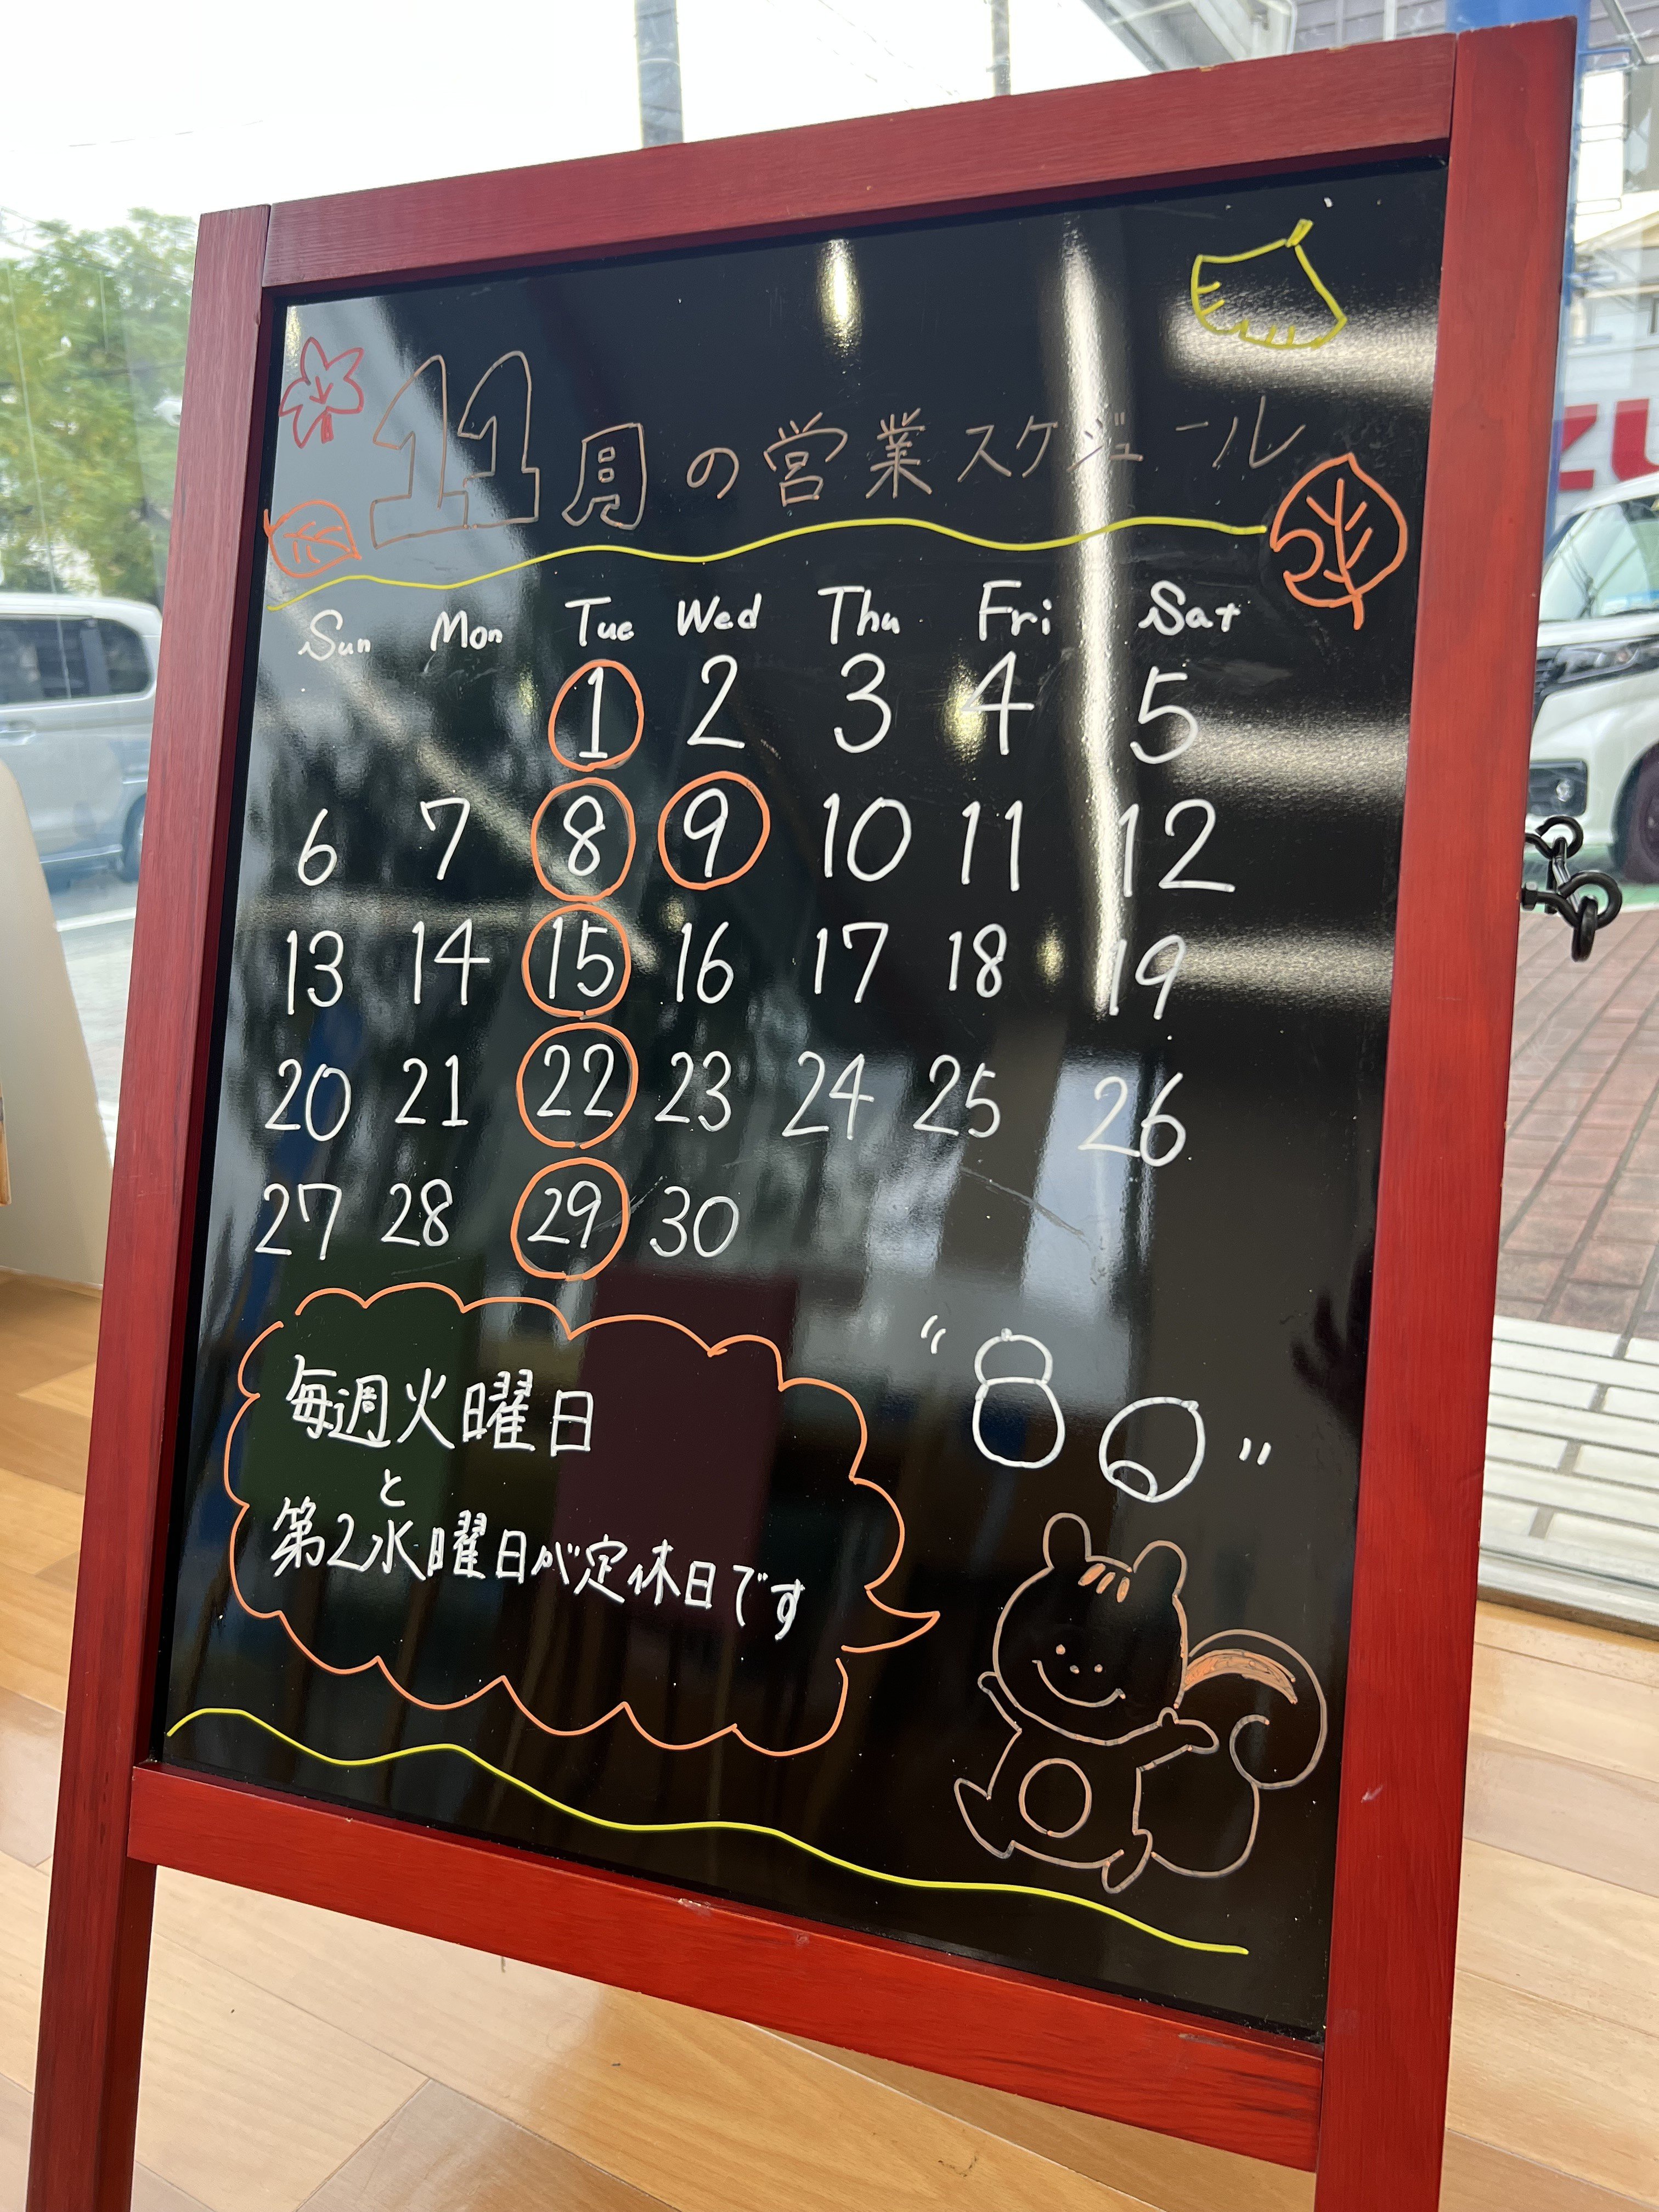 11月の営業スケジュール
Sun Mon Tue Wed Thu Fri Sat
1 2 3 4 5
6 7 8 9 10 11 12
13 14 15 16 17 18 19
20 21 22 23 24 25 26
27 28 29 30
毎週火曜日
と
第2水曜日が定休日です